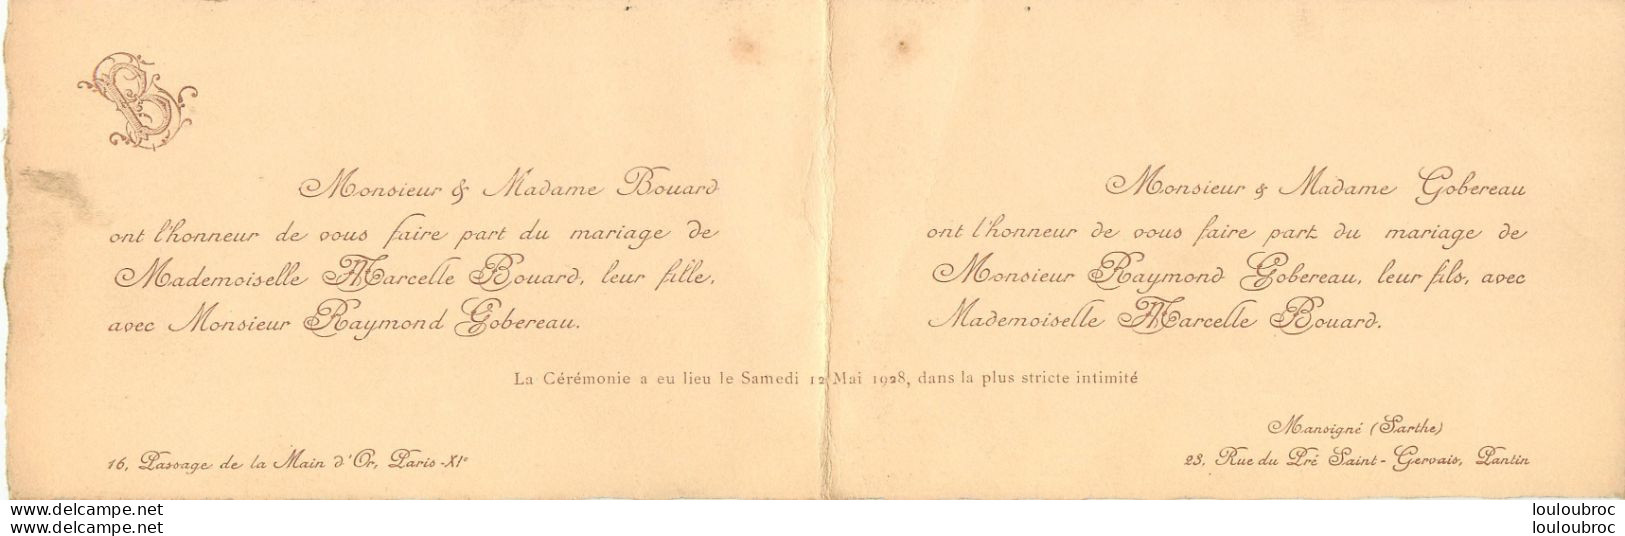 Monsieur & Madame Bouard
ont l'honneur de vous faire part du mariage de
Mademoiselle Marcelle Bouard, leur fille,
avec Monsieur Raymond Gobereau.
Monsieur & Madame Gobereau
ont l'honneur de vous faire part du mariage de
Monsieur Raymond Gobereau, leur fils, avec
Mademoiselle Marcelle Bouard.
La Cérémonie a eu lieu le Samedi 12 Mai 1928, dans la plus stricte intimité
16, Passage de la Main d'Or, Paris-XIe
Mansigné (Sarthe)
23, Rue du Pré Saint-Gervais, Pantin
www.delcampe.net
www.delcampe.net
louloubroc
louloubroc